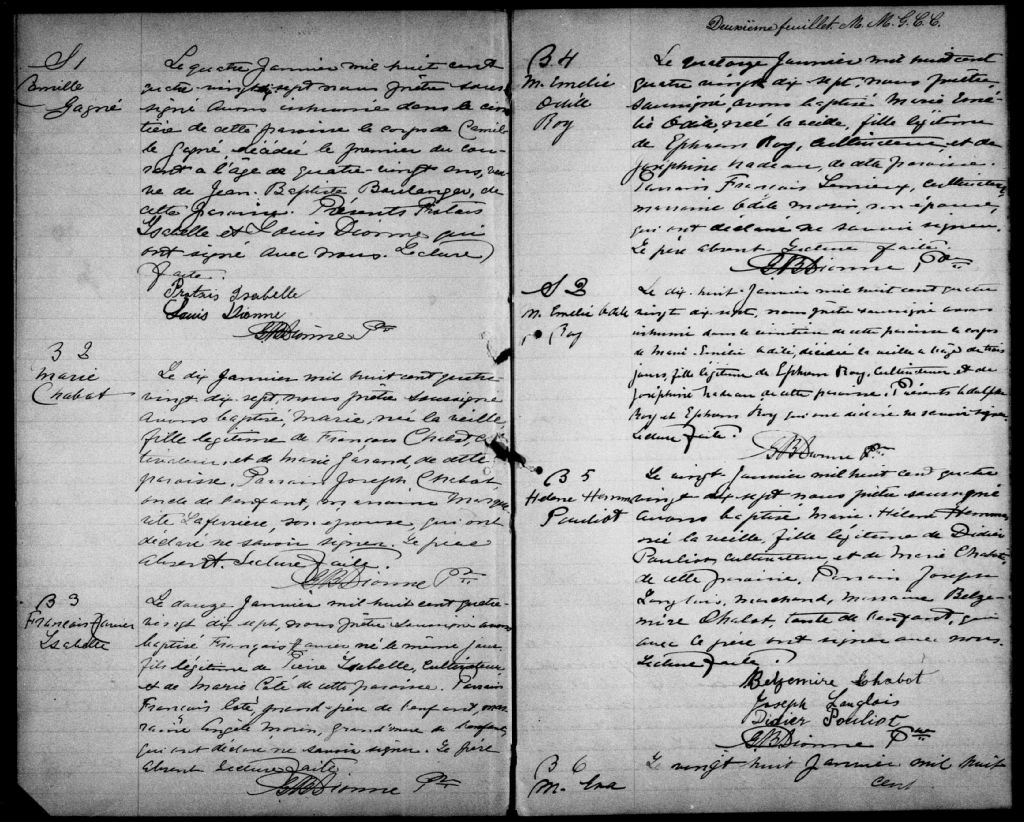 S 1
Camille
Gagné
Le quatre Janvier mil huit cent
quatre vingt dix sept nous prêtre sous-
signé avons inhumé dans le cime
tière de cette paroisse le corps de Camil
le Gagné décédé le premier du cou
rant à l'âge de quatre-vingt ans, veu
ve de Jean Baptiste Boulanger, de
cette paroisse. Présents Protais
Isabelle et Louis Dionne qui
ont signé avec nous. Lecture
faite.
Protais Isabelle
Louis Dionne
Dionne Ptre
B 2
Marie
Chabot
Le dix Janvier mil huit cent quatre-
vingt dix sept, nous prêtre soussigné
avons baptisé, Marie, née la veille,
fille légitime de François Chabot, cul
tivateur, et de Marie de cette
paroisse, Parrain Joseph Chabot
oncle de l'enfant, marraine Margue
rite Laferrière, son épouse, qui ont
déclaré ne savoir signer. Le père
absent. Lecture faite.
Dionne Ptre
B 3
François Janvier
Isabelle
Le douze Janvier mil huit cent quatre-
vingt dix sept, nous prêtre soussigné avons
baptisé François Janvier né le même jour
fils légitime de Pierre Isabelle, Cultivateur
et de Marie Côté de cette paroisse. Parrain
François Côté, grand-père de l'enfant, mar
raine Angèle Morin, grand'mère de l'enfant
qui ont déclaré ne savoir signer. Le père
absent Lecture faite
Dionne Ptre
Deuxième feuillet M. M. G. C. C.
B 4
M. Emélie
Odile
Roy
Le quatorze Janvier mil huit cent
quatre vingt dix sept, nous prêtre
soussigné avons baptisé Marie Emé
lie Odile, née la veille, fille légitime
de Ephrem Roy, Cultivateur et de
Joséphine Nadeau, de cette paroisse.
Parrain François Lemieux, Cultivateur,
marraine Odile Morin, son épouse,
qui ont déclaré ne savoir signer.
Le père absent Lecture faite
Dionne Ptre
S 2
M. Emélie Odile
Roy
Le dix huit Janvier mil huit cent quatre
vingt dix sept, nous prêtre soussigné avons
inhumé dans le cimetière de cette paroisse le corps
de Marie Emélie Odile, décédée la veille à l'âge de trois
jours, fille légitime de Ephrem Roy, Cultivateur et de
Joséphine Nadeau de cette paroisse. Présents Adolphe
Roy et Ephrem Roy qui ont déclaré ne savoir signer
Lecture faite.
Dionne Ptre
B 5
Pouliot
Le vingt Janvier mil huit cent quatre
vingt dix sept nous prêtre soussigné
avons baptisé Marie Hélène
née la veille, fille légitime de Didier
Pouliot, Cultivateur, et de Marie Chabot
de cette paroisse, Parrain Joseph
Langlois, Marchand, Marraine Belze
mire Chabot, tante de l'enfant, qui
avec le père ont signé avec nous.
Lecture faite.
Belzemire Chabot
Joseph Langlois
Didier Pouliot
Dionne Ptre
B 6
M. Eva
Le vingt huit Janvier mil huit
cent